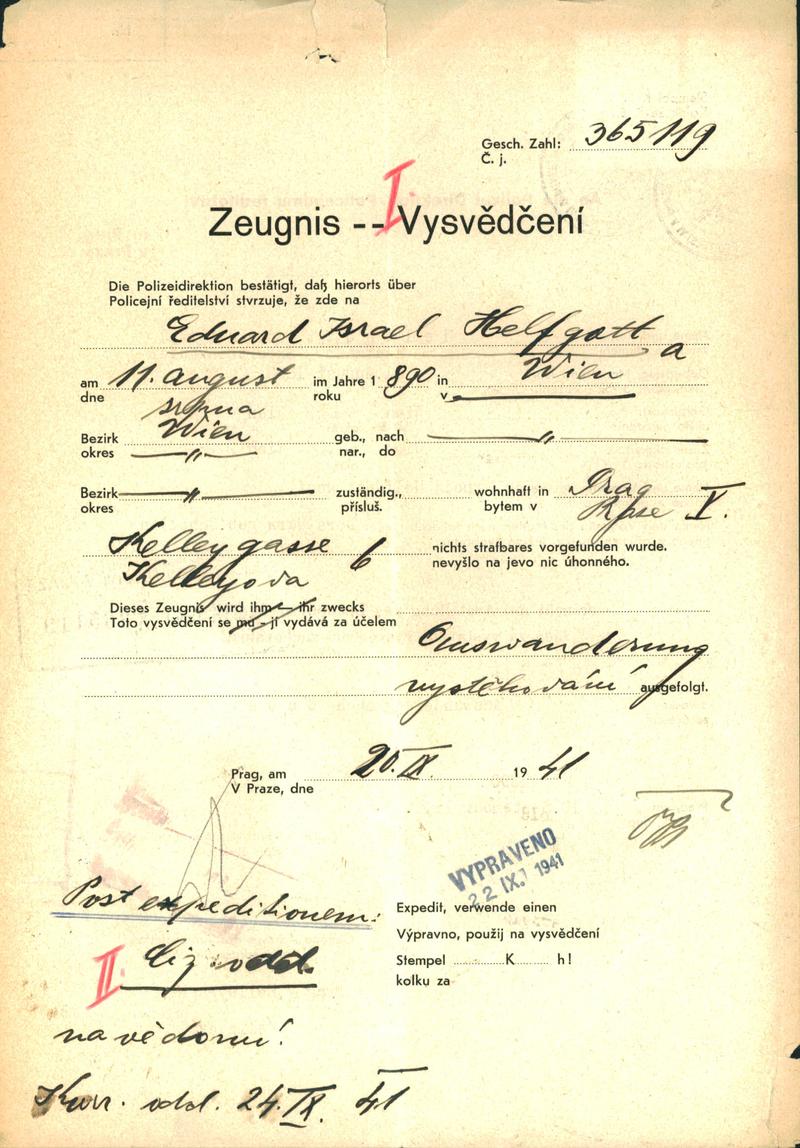 Gesch. Zahl: 365119
Č. j.
I.
Zeugnis -- Vysvědčení
Die Polizeidirektion bestätigt, daß hierorts über
Policejní ředitelství stvrzuje, že zde na
Eduard Israel Helfgott a
am 11. august im Jahre 1 890 in Wien
dne srpna roku v
Bezirk Wien geb., nach "
okres " nar., do
Bezirk " zuständig., wohnhaft in Prag
okres přísluš. bytem v V.
Kelleygasse 6 nichts strafbares vorgefunden wurde.
Kelleyova nevyšlo na jevo nic úhonného.
Dieses Zeugnis wird ihm - ihr zwecks
Toto vysvědčení se mu - jí vydává za účelem
Auswanderung
vystěhování ausgefolgt.
Prag, am 20. IX. 19 41
V Praze, dne
VYPRAVENO
22 IX. 1941
Post expeditionem:
Expedit, verwende einen
Výpravno, použij na vysvědčení
II. Ciz. odd.
Stempel K h!
kolku za
na vědomí!
odd. 24. IX. 41